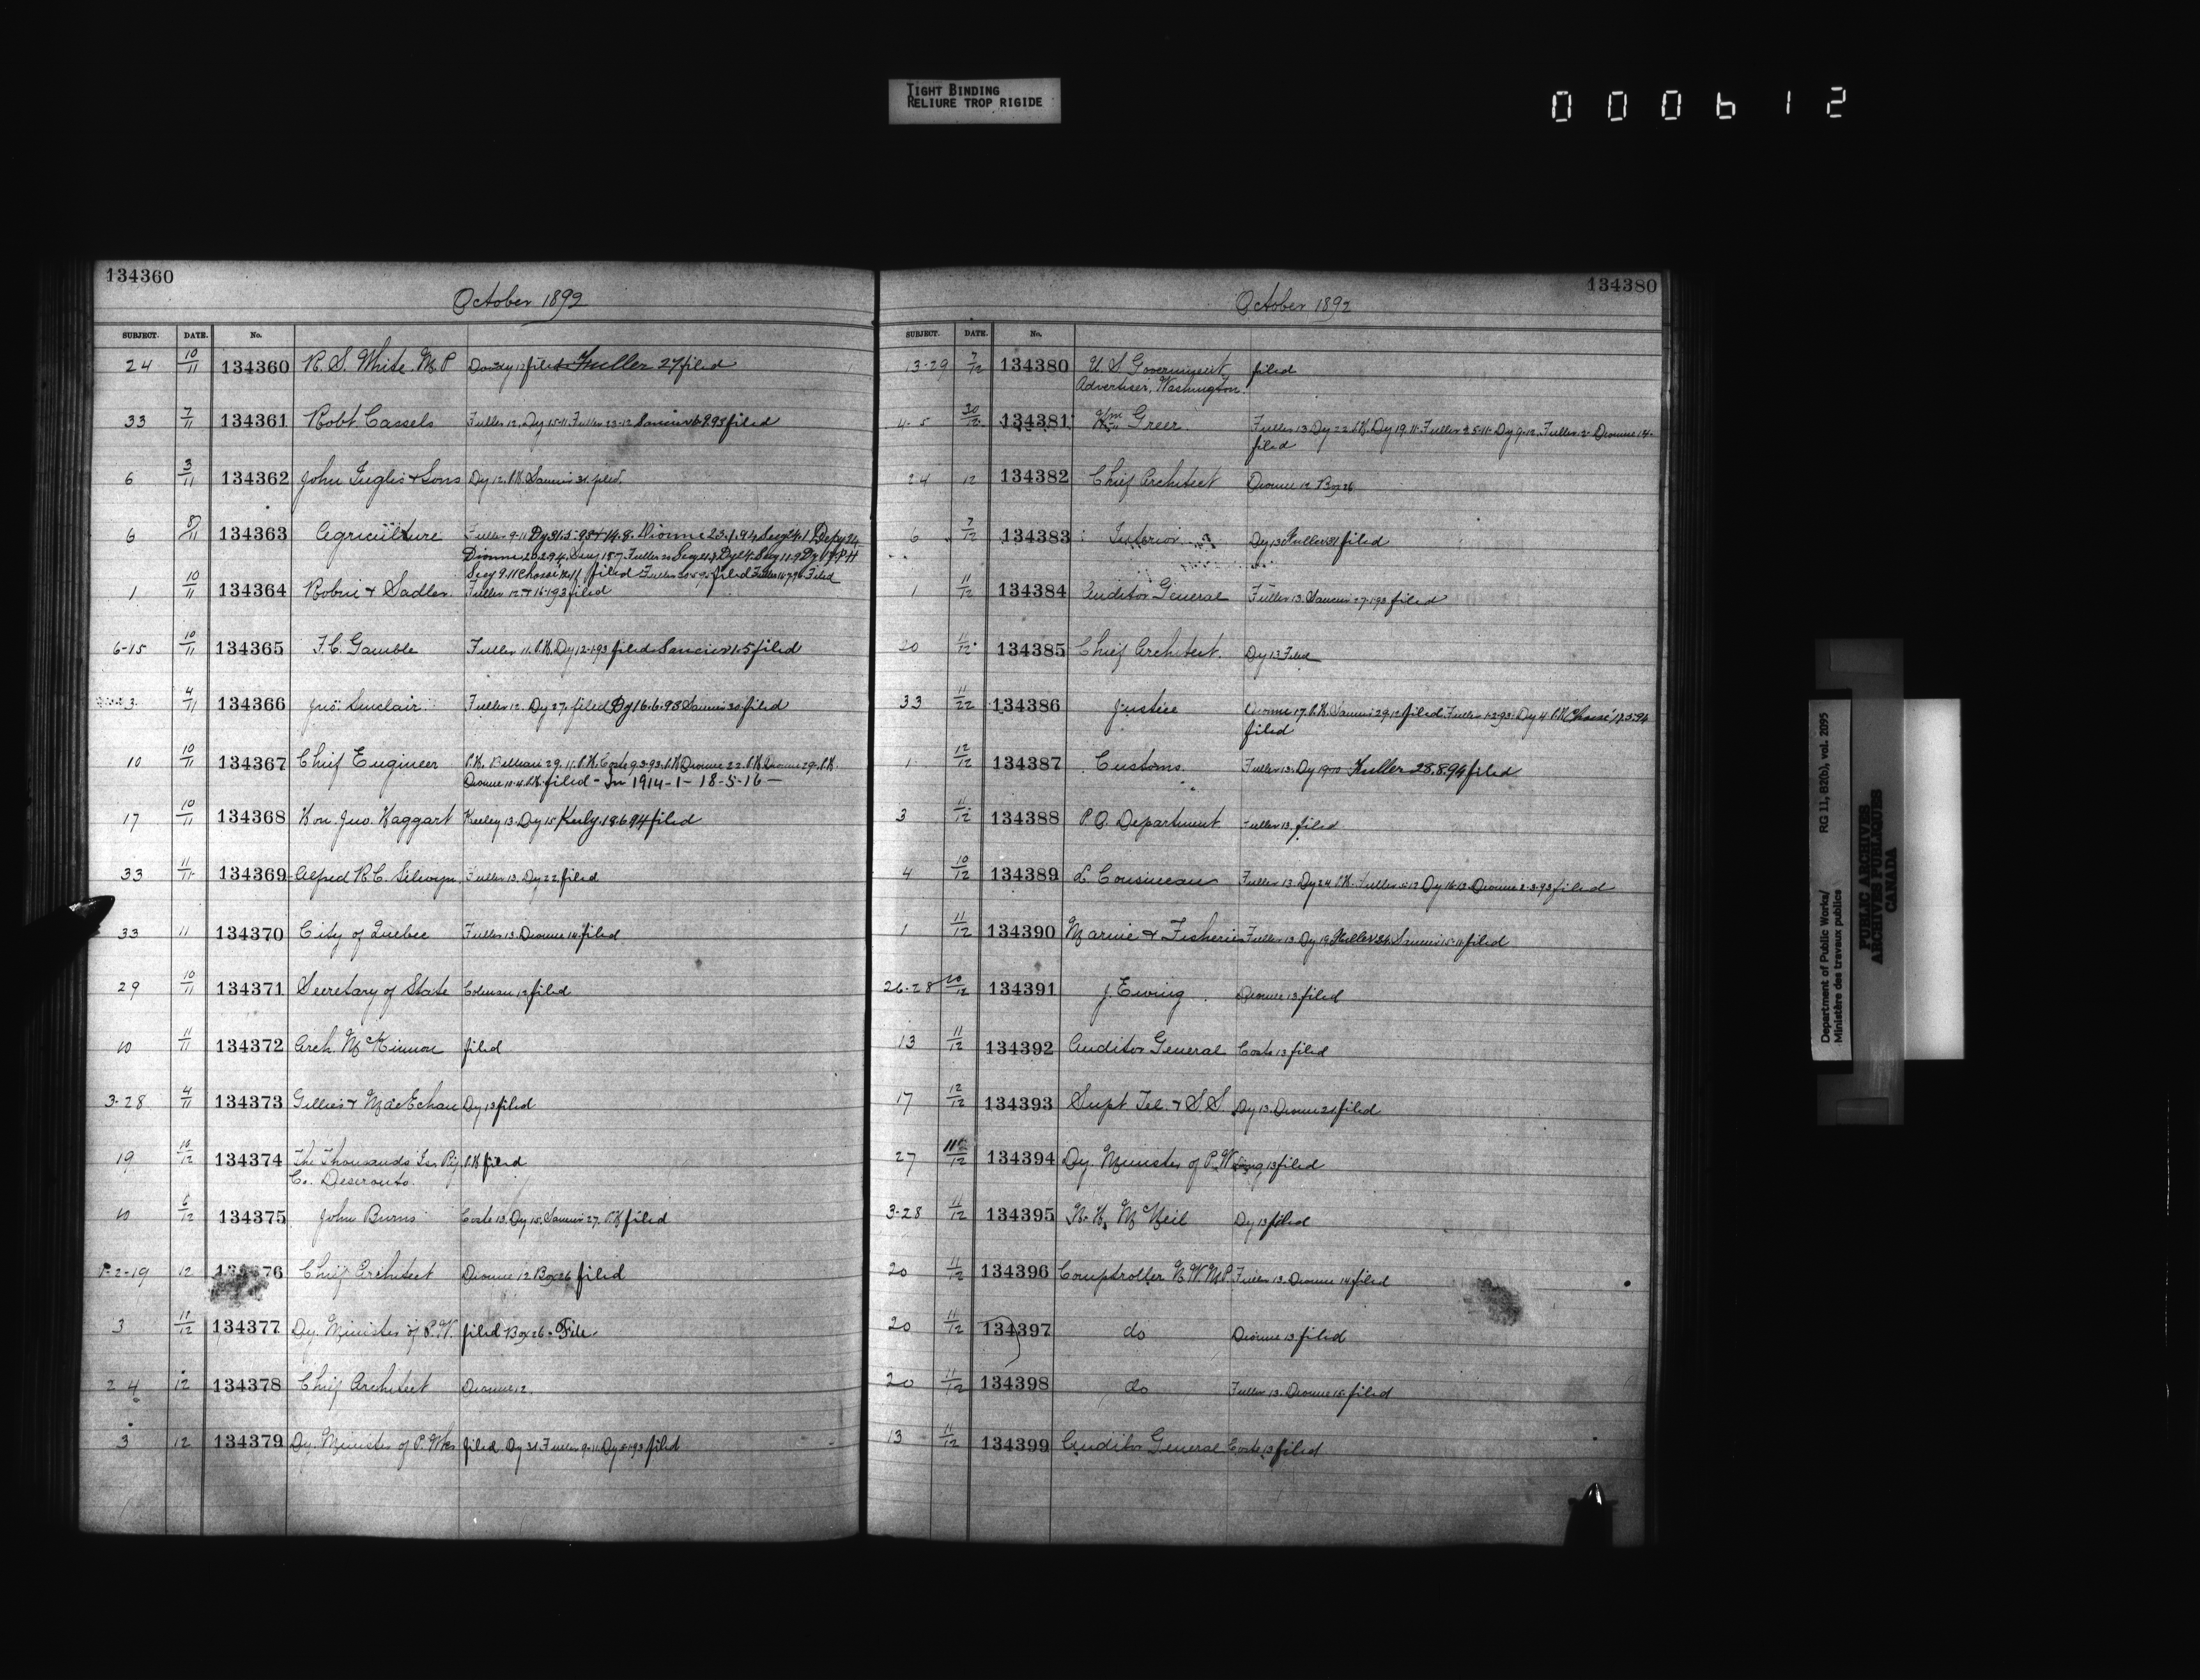 TIGHT BINDING
RELIURE TROP RIGIDE
000612
134360
October 1892
SUBJECT. DATE. No.
24 10/11 134360 R. S. White M.P filed Fuller 27 filed
33 7/11 134361 Robt. Cassels Fuller 12. Dy 15-11. Fuller 23-12 filed
6 3/11 134362 John Inglis & Sons Dy 12. P.K. filed
6 8/11 134363 Agriculture Fuller 9-11
Dionne 20.2.94
filed filed Filed
1 10/11 134364 Robin & Sadler Fuller 12 filed
6-15 10/11 134365 F. C. Gamble Fuller 11. P.K. Dy 12-1-93 filed filed
3 4/11 134366 Jno. Sinclair Fuller 12. Dy 27. filed Dy 16.6.93 filed
10 10/11 134367 Chief Engineer P.K. 29.11. P.K. Coste 9.3.93. P.K. Dionne 22. P.K. Dionne 29. P.K.
Dionne P.K. filed - In 1914-1-18-5-16-
17 10/11 134368 Hon. Jno. Haggart Keeley 13. Dy 15 filed
33 11/11 134369 Alfred R. C. Selwyn Fuller 13. Dy 22. filed
33 11 134370 City of Quebec Fuller 13. Dionne 14. filed
29 10/11 134371 Secretary of State Coleman 12 filed
10 11/11 134372 Arch. McKinnon filed
3-28 4/11 134373 Gillies & MacEchan Dy 13 filed
19 10/12 134374 The Thousands Isr Ry P.K filed
Co. Deseronto.
10 6/12 134375 John Burns Coste 13. Dy 15. 27. P.K filed
1-2-19 12 76 Chief Architect Dionne 12 Box 26 filed
3 11/12 134377 Dy. Minister of P.W. filed Box 26 - File.
24 12 134378 Chief Architect Dionne 12.
3 12 134379 Dy. Minister of P. Wks filed. Dy 31. Fuller 9-11 Dy filed
134380
October 1892
SUBJECT. DATE. No.
13-29 7/12 134380 U. S Government filed
Advertiser, Washington.
4-5 30/12 134381 Wm Greer Fuller 13. Dy 22. P.K. Dy 19.11. Fuller Dy 9-12. Fuller 12. Dionne 14.
filed
24 12 134382 Chief Architect Dionne 12 Box 26
6 7/12 134383 Interior Dy 13 Fuller 31 filed
1 11/12 134384 Auditor General Fuller 13. filed
20 11/12 134385 Chief Architect. Dy 13 Filed
33 11/22 134386 Justice Dionne 17. P.K. 29.12 filed. Fuller 1-2-93. Dy 4 P.K
filed
1 12/12 134387 Customs. Fuller 13. Dy Fuller 28.8.94 filed
3 11/12 134388 P. O. Department Fuller 13. filed
4 10/12 134389 L. Cousineau Fuller 13. Dy 24 P.K. Fuller 5-12 Dy Dionne 2-3-93 filed
1 11/12 134390 Marine & Fisheries Fuller 13 Dy 19 filed
26-28 10/12 134391 J. Ewing Dionne 13 filed
13 11/12 134392 Auditor General Coste 13 filed
17 12/12 134393 Supt. Tel. & S.S. Dy 13. Dionne 21 filed
27 134394 Dy. Minister of P.W. 13 filed
3-28 11/12 134395 McNeil Dy 13 filed
20 11/12 134396 Comptroller N.W.M.P. Fuller 13. Dionne 14 filed
20 11/12 134397 do Dionne 13 filed
20 11/12 134398 do Fuller 13. Dionne 15 filed
13 11/12 134399 Auditor General Coste 13 filed
Department of Public Works/ RG 11, B2(b), vol. 2095
Ministère des travaux publics
PUBLIC ARCHIVES
ARCHIVES PUBLIQUES
CANADA